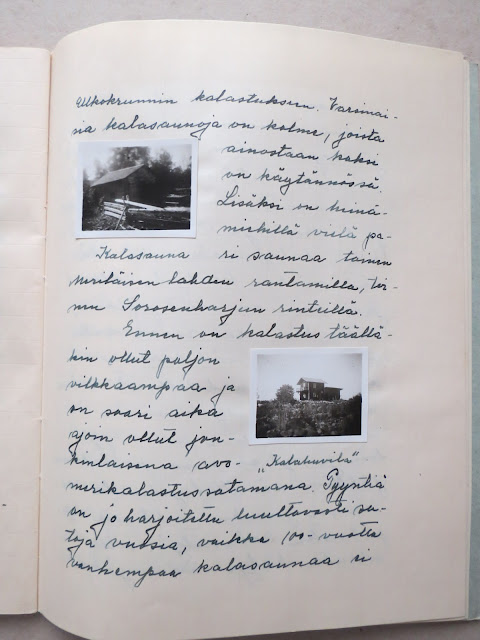 Ulkokrunnin kalastuksen. Varsinai-
sia kalasaunoja on kolme, joista
ainoastaan kaksi
on käytännössä.
Lisäksi on heinä-
miehillä vielä pa-
Kalasauna
ri saunaa toinen
meriläisen lahden rantamilla, toi-
nen Sorosenharjun rinteillä.
Ennen on kalastus täällä-
kin ollut paljon
vilkkaampaa ja
on saari aika
ajoin ollut jon-
kinlaisena avo-
„Kalahuvila"
merikalastussatamana. Pyyntiä
on jo harjoitettu luultavasti sa-
toja vuosia, vaikka 100-vuotta
vanhempaa kalasaunaa ei